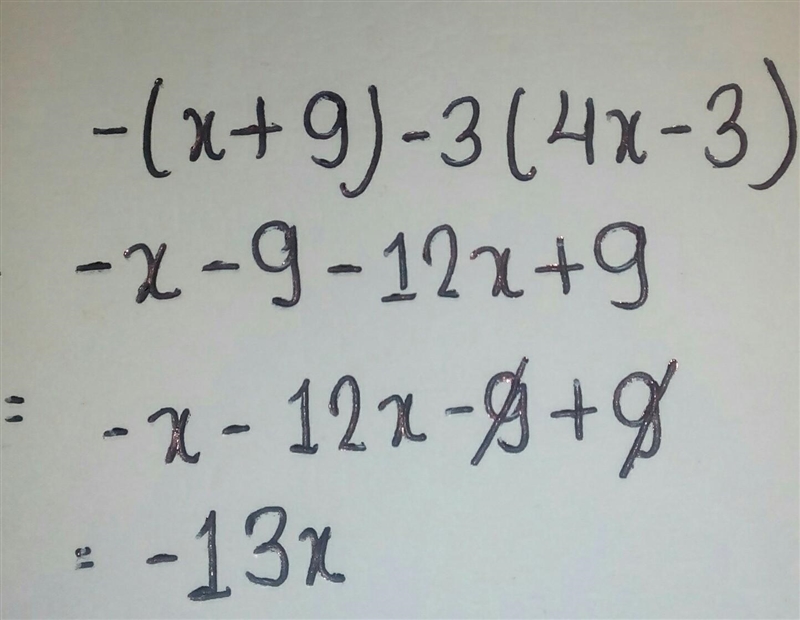 -(x+9)-3(4x-3)
-x-9-12x+9
= -x-12x-9+9
= -13x